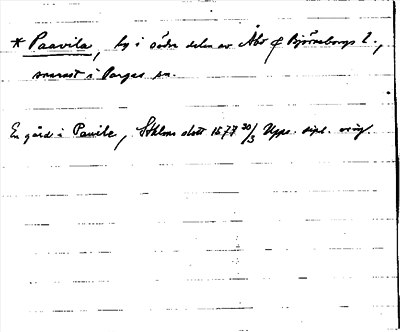 * Paavila, by i södra delen av Åbo o Björneborgs l.,
snarast i Pargas sn.
En gård i Pavile, Sthlms slott 1577 30/3 Upps. dipl. orig.